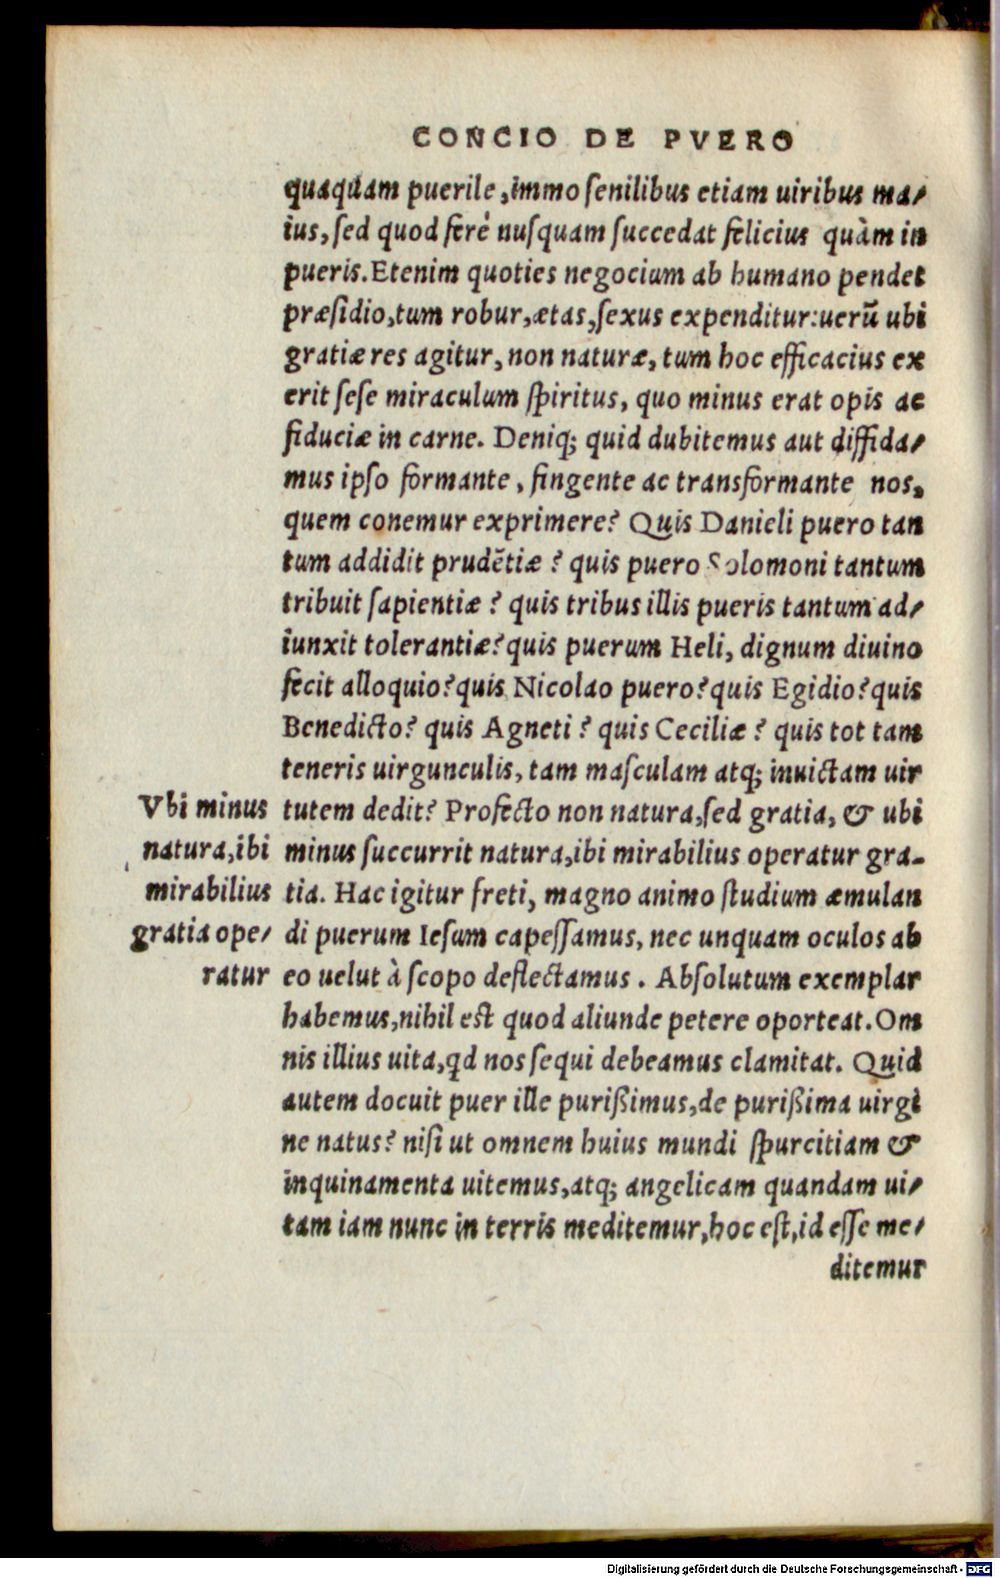 CONCIO DE PVERO
quaquam puerile, immo senilibus etiam uiribus ma/
ius, sed quod ferè nusquam succedat felicius quàm in
pueris. Etenim quoties negocium ab humano pendet
præsidio, tum robur, ætas, sexus expenditur: uerū ubi
gratiæ res agitur, non naturæ, tum hoc efficacius ex
erit sese miraculum spiritus, quo minus erat opis ac
fiduciæ in carne. Deniq; quid dubitemus aut diffida/
mus ipso formante, fingente ac transformante nos,
quem conemur exprimere? Quis Danieli puero tan
tum addidit prudẽtiæ? quis puero Solomoni tantum
tribuit sapientiæ? quis tribus illis pueris tantum ad/
iunxit tolerantiæ? quis puerum Heli, dignum diuino
fecit alloquio? quis Nicolao puero? quis Egidio? quis
Benedicto? quis Agneti? quis Ceciliæ? quis tot tam
teneris uirgunculis, tam masculam atq; inuictam uir
tutem dedit? Profecto non natura, sed gratia, & ubi
minus succurrit natura, ibi mirabilius operatur gra-
tia. Hac igitur freti, magno animo studium æmulan
di puerum Iesum capessamus, nec unquam oculos ab
eo uelut à scopo deflectamus. Absolutum exemplar
habemus, nihil est quod aliunde petere oporteat. Om
nis illius uita, qd nos sequi debeamus clamitat. Quid
autem docuit puer ille purißimus, de purißima uirgi
ne natus? nisi ut omnem huius mundi spurcitiam &
inquinamenta uitemus, atq; angelicam quandam ui/
tam iam nunc in terris meditemur, hoc est, id esse me/
ditemur
Vbi minus
natura, ibi
mirabilius
gratia ope/
ratur
Digitalisierung gefördert durch die Deutsche Forschungsgemeinschaft - DFG